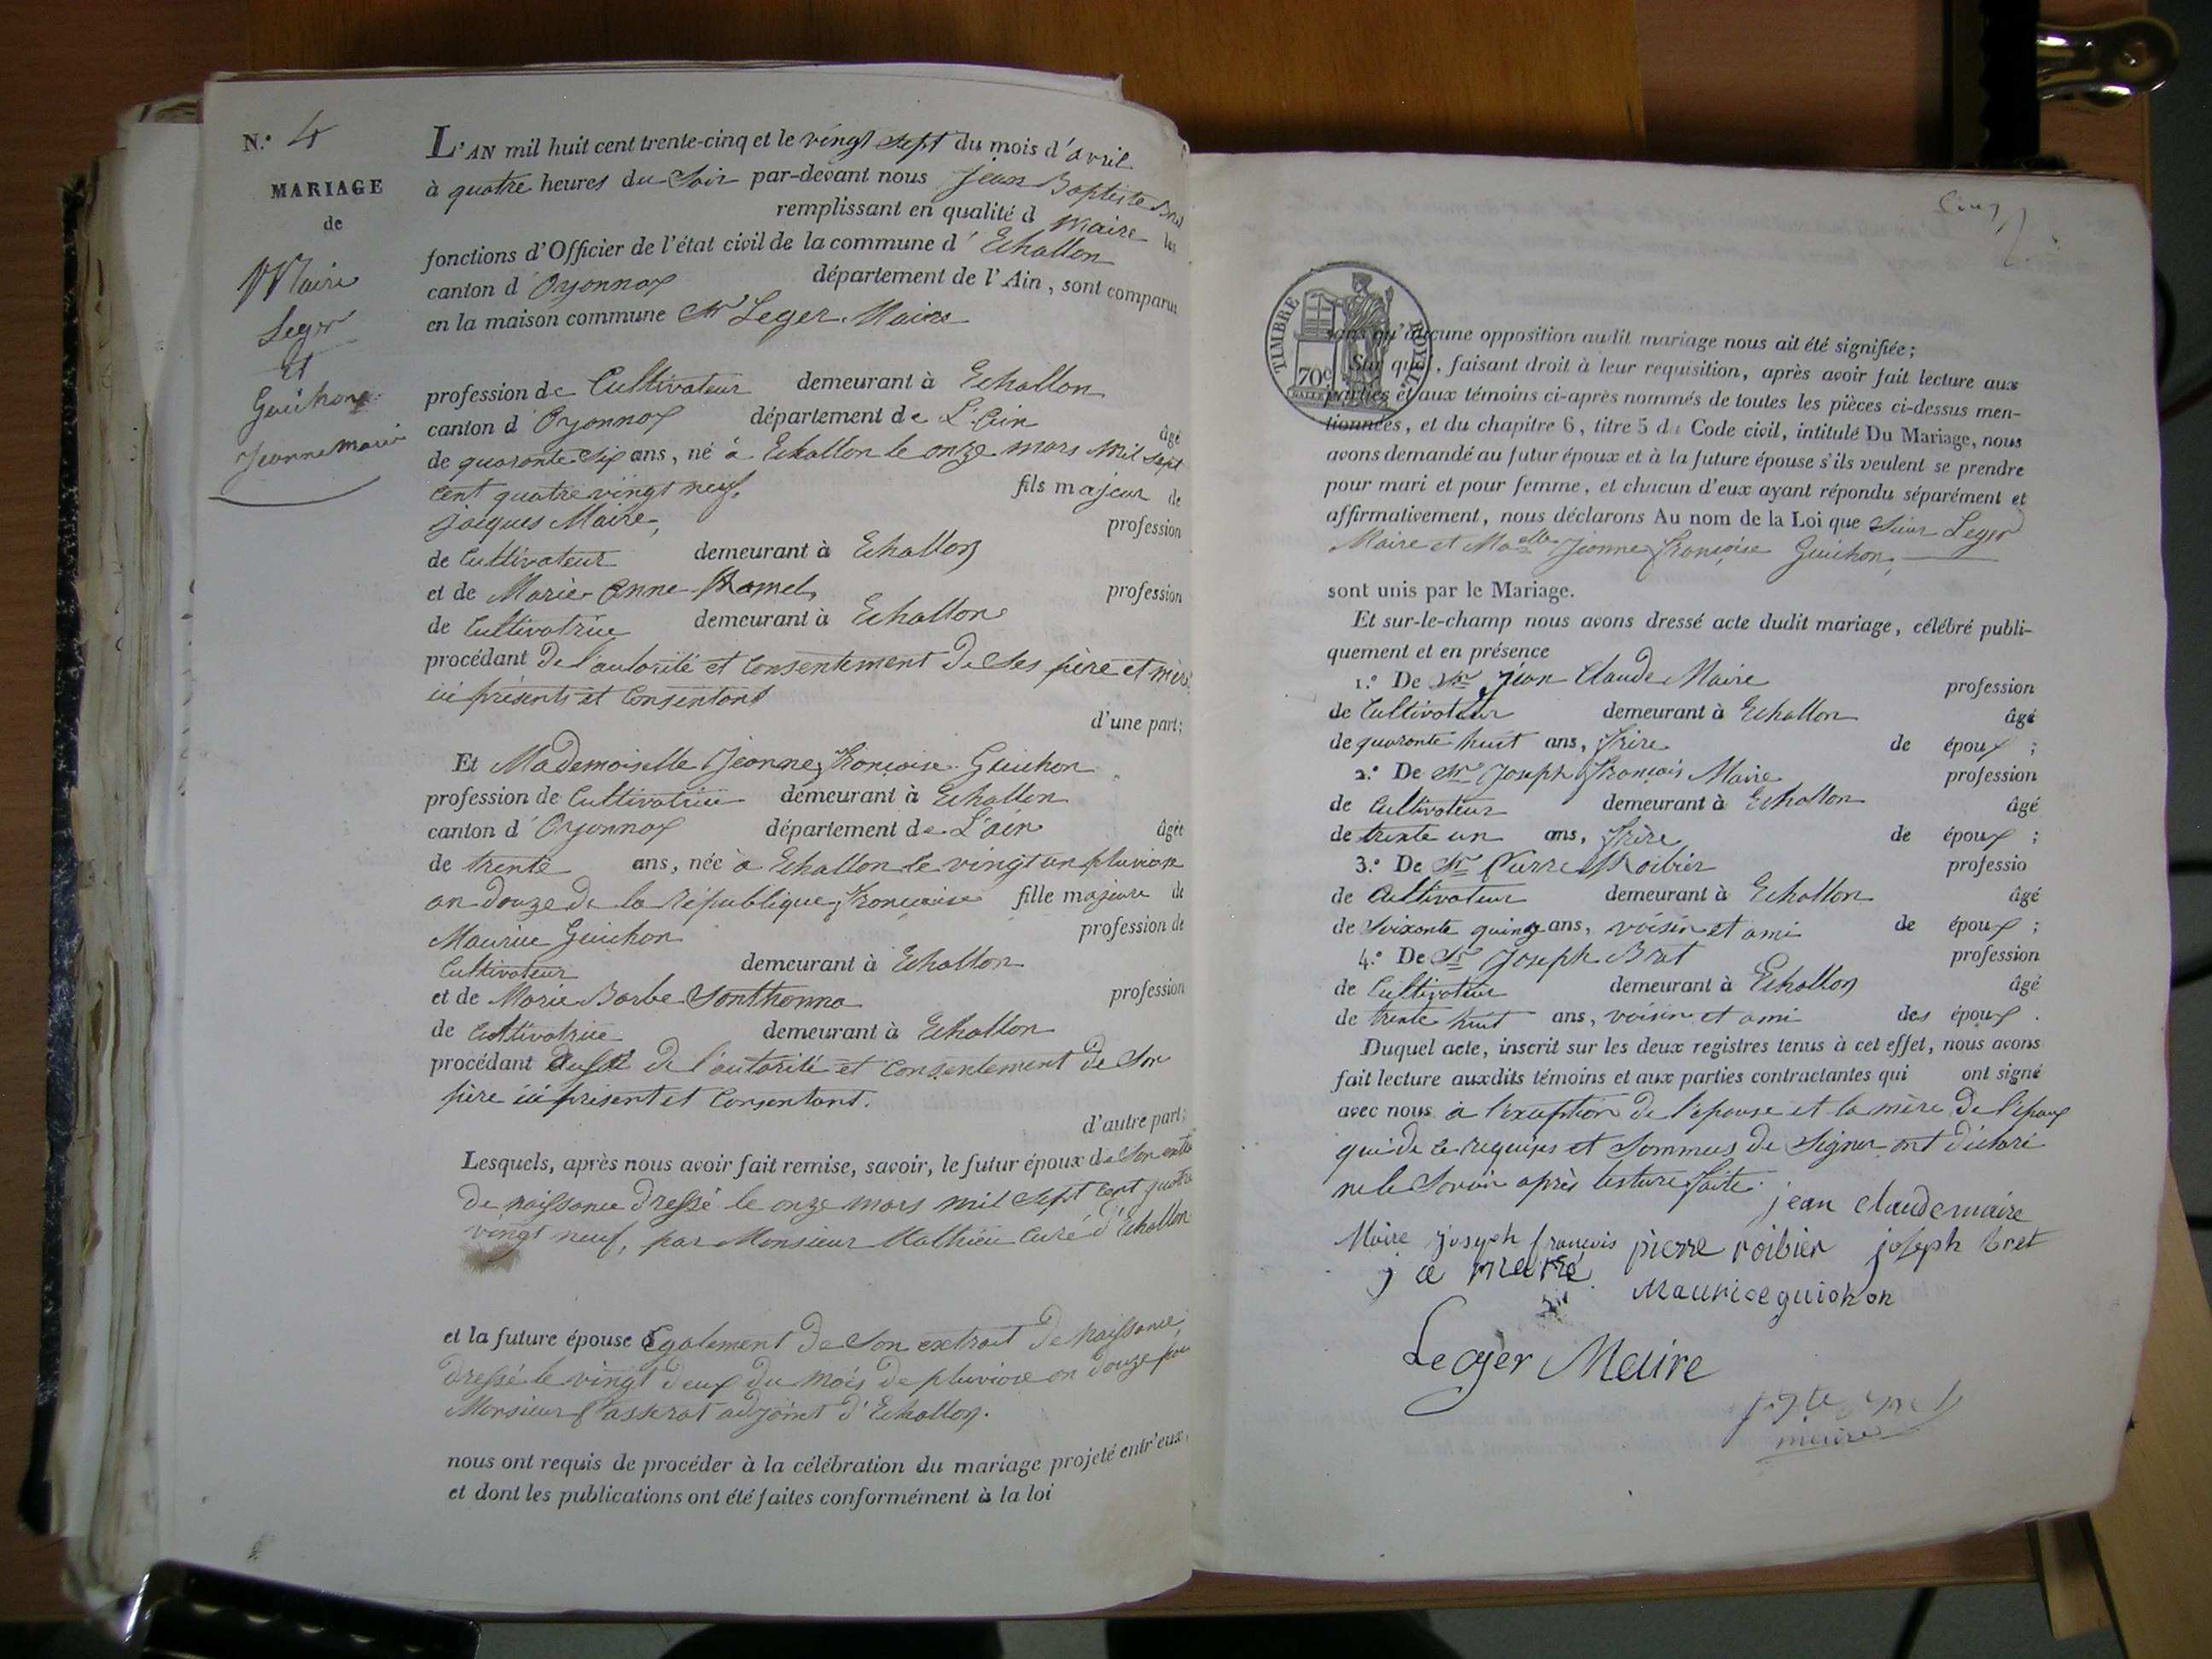 N.° 4
MARIAGE
de
Maire
Leger
et
Guichon
Jeanne Marie
L'AN mil huit cent trente-cinq et le vingt sept du mois d'avril
à quatre heures du Soir par-devant nous Jean Baptiste
remplissant en qualité d Maire les
fonctions d'Officier de l'état civil de la commune d' Echallon
canton d'Oyonnax département de l'Ain, sont comparus
en la maison commune Sr Leger Maire
profession de Cultivateur demeurant à Echallon
canton d'Oyonnax département de L'ain âgé
de quarante six ans, né à Echallon le onze mars mil sept
cent quatre vingt neuf, fils majeur de
jacques Maire, profession
de Cultivateur demeurant à Echallon
et de Marie Anne Ramel, profession
de Cultivatrice demeurant à Echallon
procédant De l'autorité et Consentement De Ses père et mère
ici présents et Consentant
d'une part;
Et Mademoiselle Jeanne françoise Guichon
profession de Cultivatrice demeurant à Echallon
canton d'Oyonnax département de L'ain âgée
de trente ans, née à Echallon le vingt un pluviose
an douze de la république française fille majeure de
Maurice Guichon profession de
Cultivateur demeurant à Echallon
et de Marie Barbe Sonthonna profession
de Cultivatrice demeurant à Echallon
procédant aussi De l'autorité et Consentement De Son
père ici présent et Consentant.
d'autre part;
Lesquels, après nous avoir fait remise, savoir, le futur époux de Son
De naissance Dressé le onze mars mil Sept Cent quatre
vingt neuf, par Monsieur Mathieu Curé d'Echallon
et la future épouse Egalement De Son extrait De naissance,
Dressé le vingt Deux Du mois De pluviose an Douze par
Monsieur Passerat adjoint d'Echallon.
nous ont requis de procéder à la célébration du mariage projeté entr'eux,
et dont les publications ont été faites conformément à la loi
TIMBRE ROYAL
70c
sans qu'aucune opposition audit mariage nous ait été signifiée;
Sur quoi, faisant droit à leur requisition, après avoir fait lecture aux
parties et aux témoins ci-après nommés de toutes les pièces ci-dessus men-
tionnées, et du chapitre 6, titre 5 du Code civil, intitulé Du Mariage, nous
avons demandé au futur époux et à la future épouse s'ils veulent se prendre
pour mari et pour femme, et chacun d'eux ayant répondu séparément et
affirmativement, nous déclarons Au nom de la Loi que Sieur Leger
Maire et Madelle Jeanne françoise Guichon,
sont unis par le Mariage.
Et sur-le-champ nous avons dressé acte dudit mariage, célébré publi-
quement et en présence
1.° De Sr Jean Claude Maire profession
de Cultivateur demeurant à Echallon âgé
de quarante huit ans, frère de époux ;
2.° De Sr Joseph François Maire profession
de Cultivateur demeurant à Echallon âgé
de trente un ans, frère de époux ;
3.° De Sr Pierre Roibier professio
de Cultivateur demeurant à Echallon âgé
de Soixante quinze ans, voisin et ami de époux ;
4.° De Sr Joseph Bret profession
de Cultivateur demeurant à Echallon âgé
de trente huit ans, voisin et ami des époux .
Duquel acte, inscrit sur les deux registres tenus à cet effet, nous avons
fait lecture auxdits témoins et aux parties contractantes qui ont signé
avec nous à l'exception De l'épouse et la mère De l'époux
qui de ce requises et Sommes de Signer ont déclaré
ne le Savoir après lecture faite.
jean claude maire
Maire joseph françois pierre roibier joseph bret
maire Maurice guichon
Leger Maire
maire